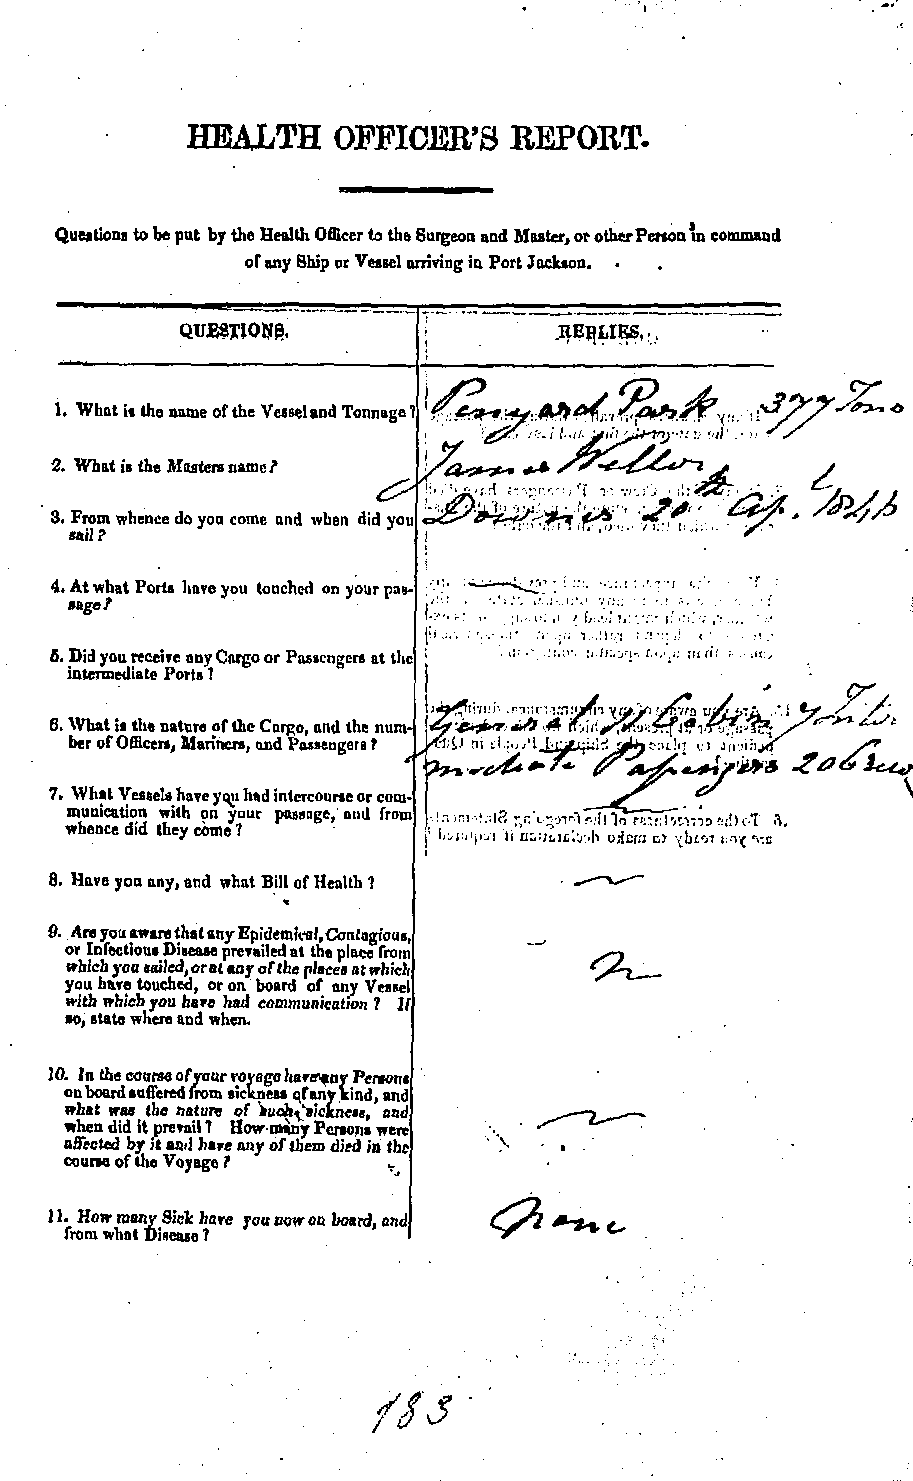 HEALTH OFFICER'S REPORT.
Questions to be put by the Health Officer to the Surgeon and Master, or other Person in command
of any Ship or Vessel arriving in Port Jackson.
QUESTIONS.
REPLIES.
1. What is the name of the Vessel and Tonnage?
Penyard Park 377 Tons
2. What is the Masters name?
James Weller
3. From whence do you come and when did you
sail?
Downes 20th Apl. 1846
4. At what Ports have you touched on your pas-
sage?
5. Did you receive any Cargo or Passengers at the
intermediate Ports?
6. What is the nature of the Cargo, and the num-
ber of Officers, Mariners, and Passengers?
General 11 Cabin 7 Inter
mediate Passengers 20 Crew
7. What Vessels have you had intercourse or com-
munication with on your passage, and from
whence did they come?
8. Have you any, and what Bill of Health?
9. Are you aware that any Epidemical, Contagious,
or Infectious Disease prevailed at the place from
which you sailed, or at any of the places at which
you have touched, or on board of any Vessel
with which you have had communication? If
so, state where and when.
10. In the course of your voyage have any Persons
on board suffered from sickness of any kind, and
what was the nature of such sickness, and
when did it prevail? How many Persons were
affected by it and have any of them died in the
course of the Voyage?
11. How many Sick have you now on board, and
from what Disease?
None
183